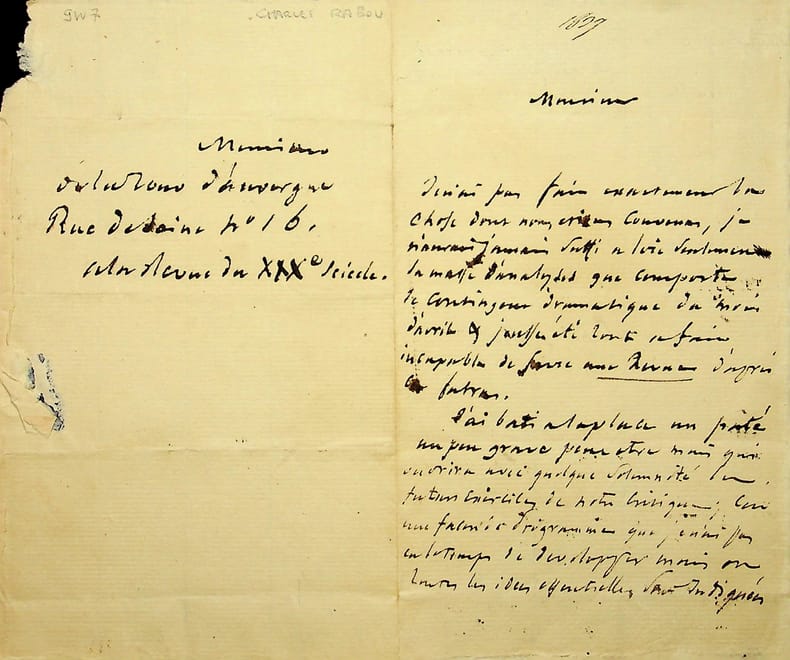 9W7
CHARLES RABOU
Monsieur
de la Tour d'auvergne
Rue de Seine nº 16.
a la Revue du XIXe Siècle.
1839
Monsieur
Je n'ai pas fait exactement la
chose dont nous étions Convenus, je
n'aurais jamais Suffi a lire Seulement
la masse d'analyses que comporte
le contingent dramatique du mois
d'avril & j'eusse été tout a fait
incapable de faire une Revue d'après
Ce fatras.
J'ai bati a la place un pâté
un peu grave peut etre mais qui
ouvrira avec quelque Solemnité les
futurs exercices de notre Critique; C'est
une façon de programme que je n'ai pas
eu le temps de developper mais ou
toutes les idées essentielles Sont Indiquées